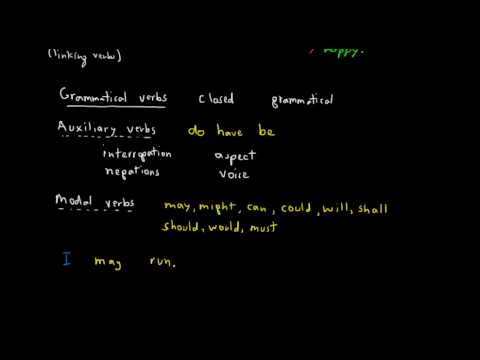 (linking verbs) happy.
Grammatical verbs closed grammatical
Auxiliary verbs do have be
interrogation aspect
negations voice
Modal verbs may, might, can, could, will, shall
should, would, must
I may run.